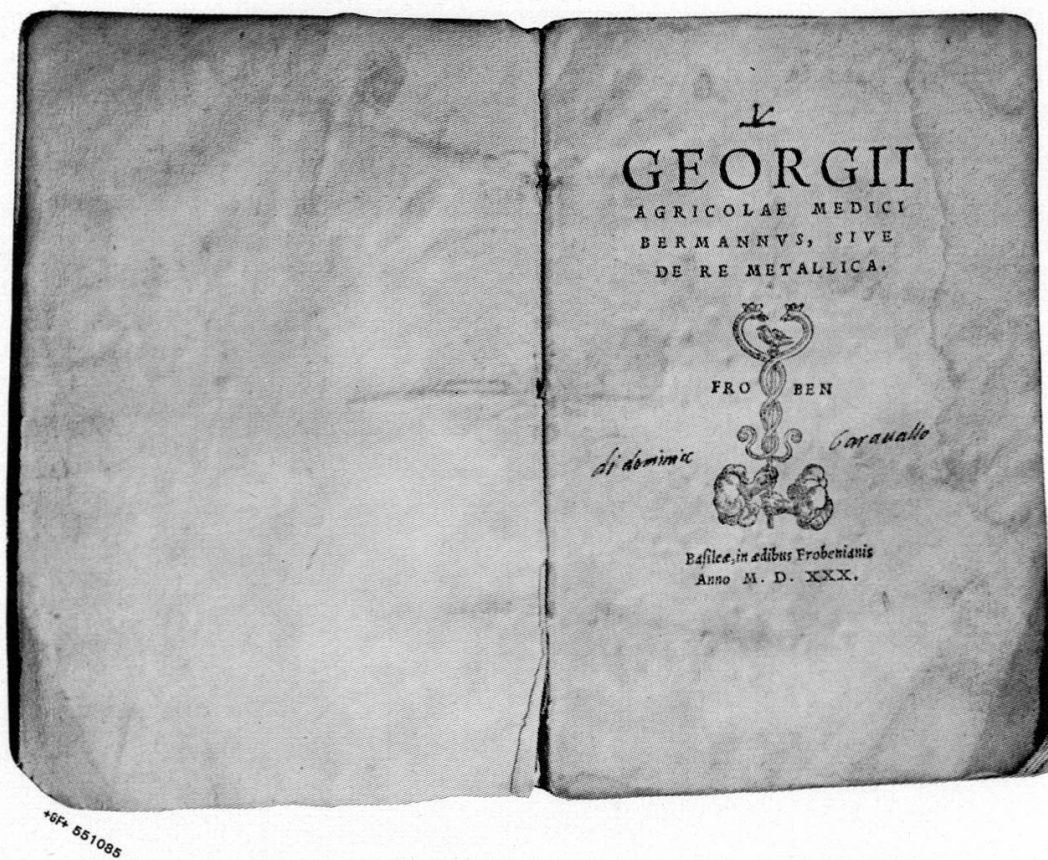 GEORGII
AGRICOLAE MEDICI
BERMANNVS, SIVE
DE RE METALLICA.
FRO BEN
di dominic Carauallo
Basileæ, in ædibus Frobenianis
Anno M. D. XXX.
+GF+ 551085